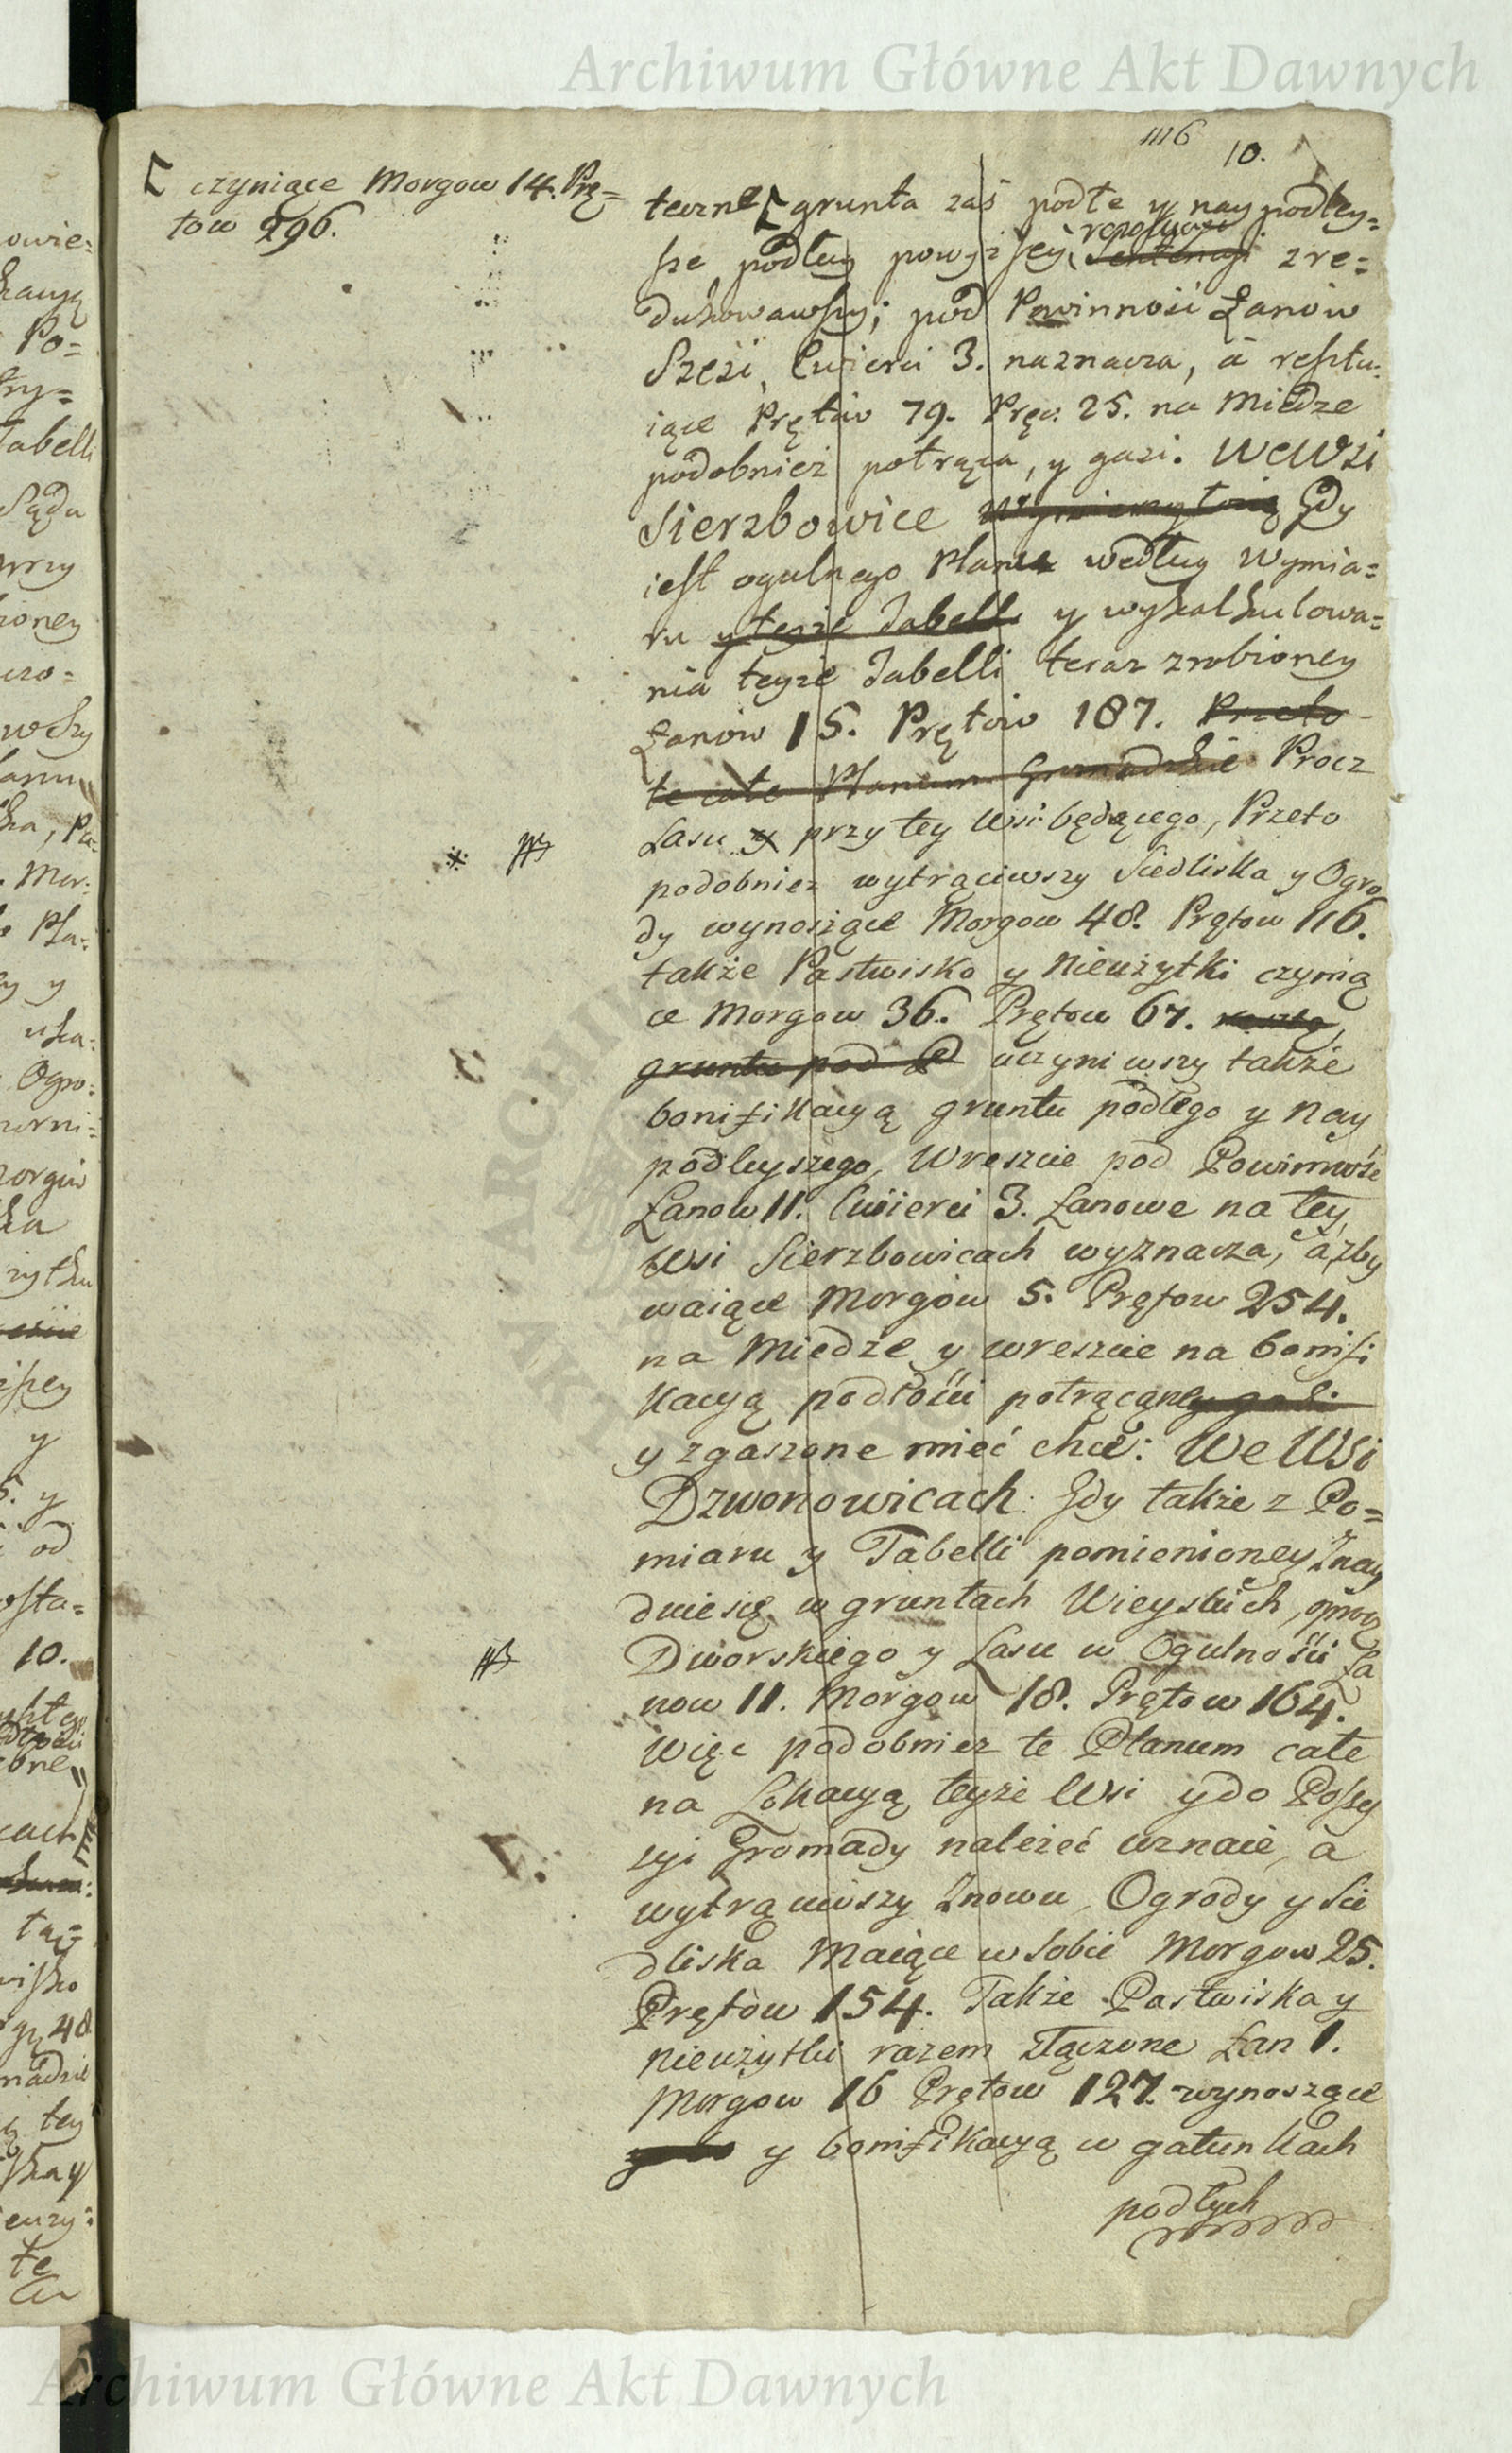 Archiwum Główne Akt Dawnych
1116
10.
[ czyniące Morgow 14. Prę=
tow 296.
teczne [ grunta zaś podłe y nay podley=
sze podług powyżſzey
zre=
dukowawſzy; pod Powinność Łanów
Sześć, Cwierci 3. naznacza, á reſztu:
iące Prętów 79. Pręc. 25. na Miedze
podobnież potrąca, y gasi. We Wsi
Sierzbowice Gdy
ieſt ogulnego Planu według Wymia=
ru y teyże Tabelli y wykalkulowa=
nia teyże Tabelli teraz zrobioney
Łanów 15. Prętów 187. Przeto
te całe Planum Gromadzkie Procz
Lasu y przy tey Wsi będącego, Przeto
podobniez wytrąciwszy Siedliska y Ogro
dy wynosiące Morgow 48. Prętow 116.
także Pastwisko y Nieużytki czynią
ce Morgow 36. Prętow 67.
gruntu pod P uczyniwszy także
bonifikacyą gruntu podłego y nay
podleyszego, Wreszcie pod Powinność
Łanow 11. Cwierci 3. Łanowe na tey
Wsi Sierzbowicach wyznacza, á zby
waiące Morgów 5. Prętow 254.
na Miedze y wreszcie na bonifi
kacyą podłości potrącane y gasi
y zgaszone mieć chce: We Wsi
Dzwonowicach: Gdy także z Po=
miaru y Tabelli pomienioney Znay
duie się w gruntach Wieyskich, oprocz
Dworskiego y Lasu w Ogulności Ła
now 11. Morgow 18. Prętow 164.
Więc podobniez te Planum całe
na Lokacyą teyże Wsi y do Poſſeſ
syi Gromady należeć uznaie, á
wytrąciwszy Znowu, Ogrody y Sie
dliska Maiące w Sobie Morgow 25.
Prętow 154. Także Pastwiska y
nieużytki razem złączone Łan 1.
Morgow 16 Prętow 127. wynoszące
y bonifikacyą w gatunkach
podłych
Archiwum Główne Akt Dawnych